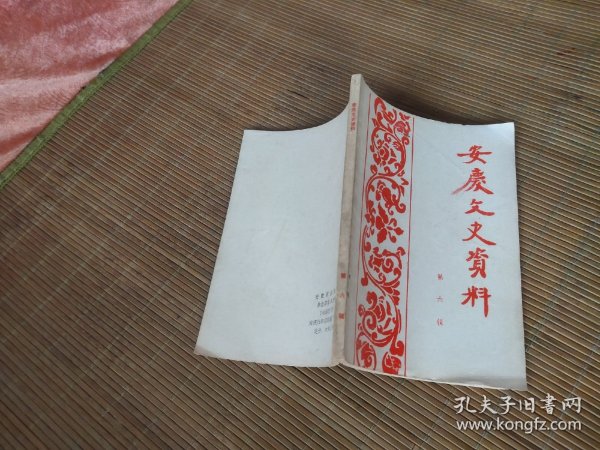 安庆文史資料
第六辑
安庆文史資料
第六辑
孔夫子旧書网
www.kongfz.com